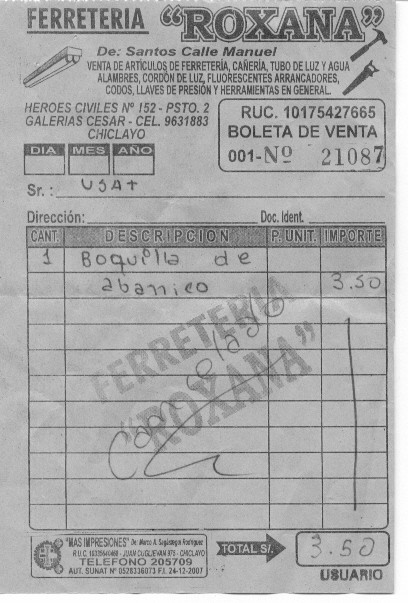 FERRETERIA "ROXANA"
De: Santos Calle Manuel
VENTA DE ARTÍCULOS DE FERRETERÍA, CAÑERÍA, TUBO DE LUZ Y AGUA
ALAMBRES, CORDÓN DE LUZ, FLUORESCENTES ARRANCADORES,
CODOS, LLAVES DE PRESIÓN Y HERRAMIENTAS EN GENERAL.
HEROES CIVILES Nº 152 - PSTO. 2
GALERIAS CESAR - CEL. 9631883
CHICLAYO
RUC. 10175427665
BOLETA DE VENTA
001-Nº 21087
DIA MES AÑO
Sr.: USAT
Dirección: Doc. Ident.
CANT. DESCRIPCION P. UNIT. IMPORTE
1 Boquilla de
abanico 3.50
FERRETERIA
"ROXANA"
Cancelado
"MAS IMPRESIONES" De: Marco A.
JUAN CUGLIEVAN 875 - CHICLAYO
TELEFONO 205709
AUT. SUNAT Nº 0528336073 F.I. 24-12-2007
TOTAL S/. 3.50
USUARIO